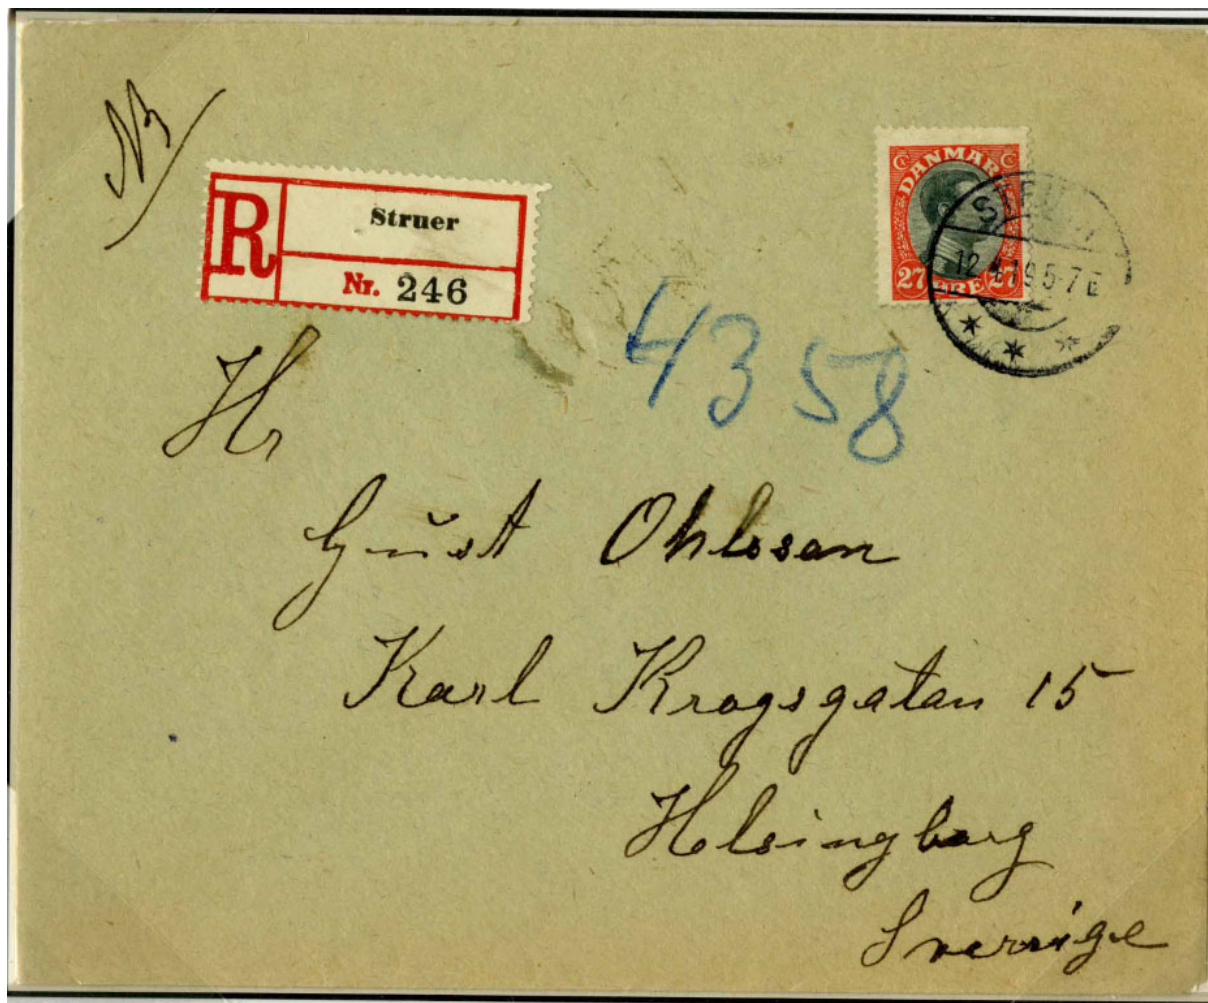 NB
R
Struer
Nr. 246
DANMARK
27 ØRE 27
STRUER
12.4.19 5-7 E
4358
Hr
Gust Ohlsson
Karl Krogsgatan 15
Helsingborg
Sverrige